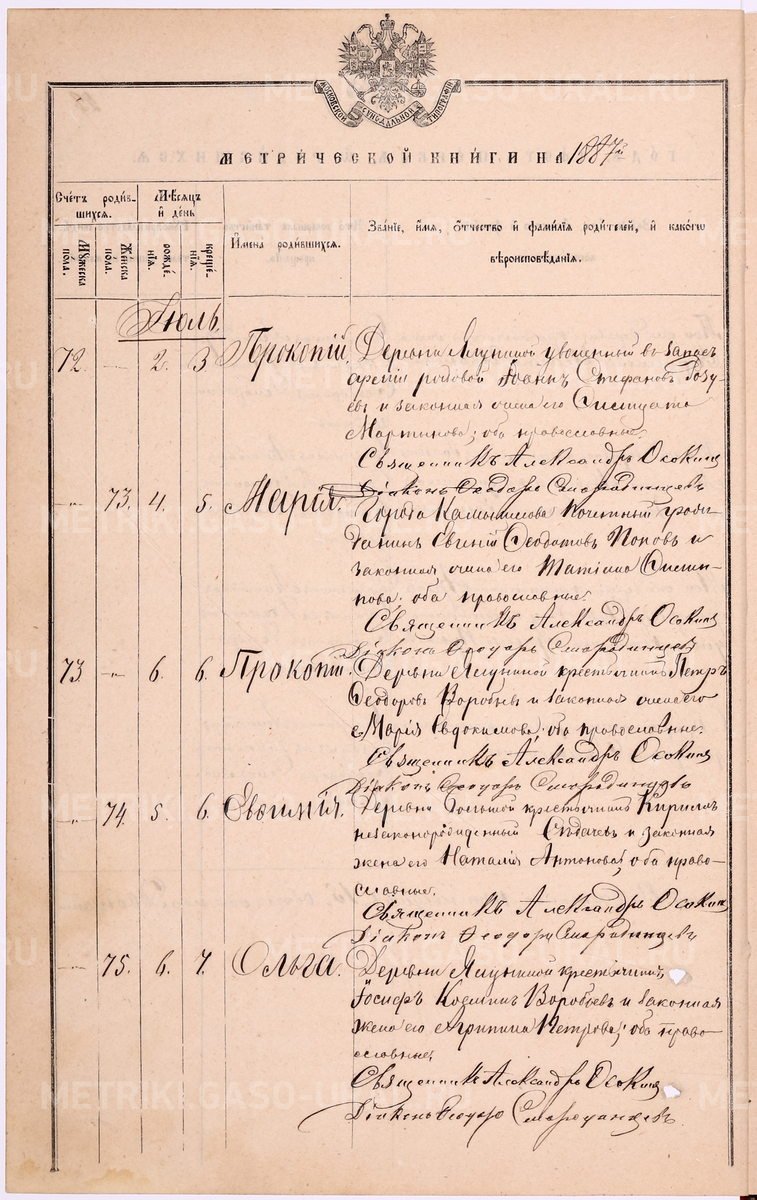 МОСКОВСКОЙ СѴНОДАЛЬНОЙ ТИПОГРАФІИ
МЕТРИЧЕСКОЙ КНИГИ НА 1887
Счетъ родившихся.
Мѣсяцъ и день
Имена родившихся.
Званіе, имя, отчество и фамилія родителей, и какого вѣроисповѣданія.
Мужеска пола.
Женска пола.
рожденія.
крещенія.
Іюль.
72. — 2. 3 Прокопій. Деревни Ялуниной уволенный въ запасъ
арміи рядовой Іоаннъ Стефановъ
и законная жена его
Мартинова; оба православные.
Священникъ Александръ Осокинъ
Діаконъ Ѳеодоръ Смородинцевъ
" 73. 4. 5. Марія. Города Камышлова Почетный гражданинъ Евгеній Ѳеодотовъ Поповъ и
законная жена его Татіана
оба православные.
Священникъ Александръ Осокинъ
Діаконъ Ѳеодоръ Смородинцевъ
73 " 6. 6. Прокопій. Деревни Ялуниной крестьянинъ Петръ
Ѳеодоровъ Воробьевъ и законная жена его
Марія Евдокимова; оба православные.
Священникъ Александръ Осокинъ
Діаконъ Ѳеодоръ Смородинцевъ
" 74. 5. 6. Евѳимія. Деревни крестьянинъ Кириллъ
незаконорожденный и законная
жена его Наталія Антонова; оба православные.
Священникъ Александръ Осокинъ
Діаконъ Ѳеодоръ Смородинцевъ
" 75. 6. 7. Ольга. Деревни Ялуниной крестьянинъ
Іосифъ Козминъ Воробьевъ и законная
жена его Агрипина Петрова; оба православные.
Священникъ Александръ Осокинъ
Діаконъ Ѳеодоръ Смородинцевъ.
METRIKI.GASO-URAL.RU